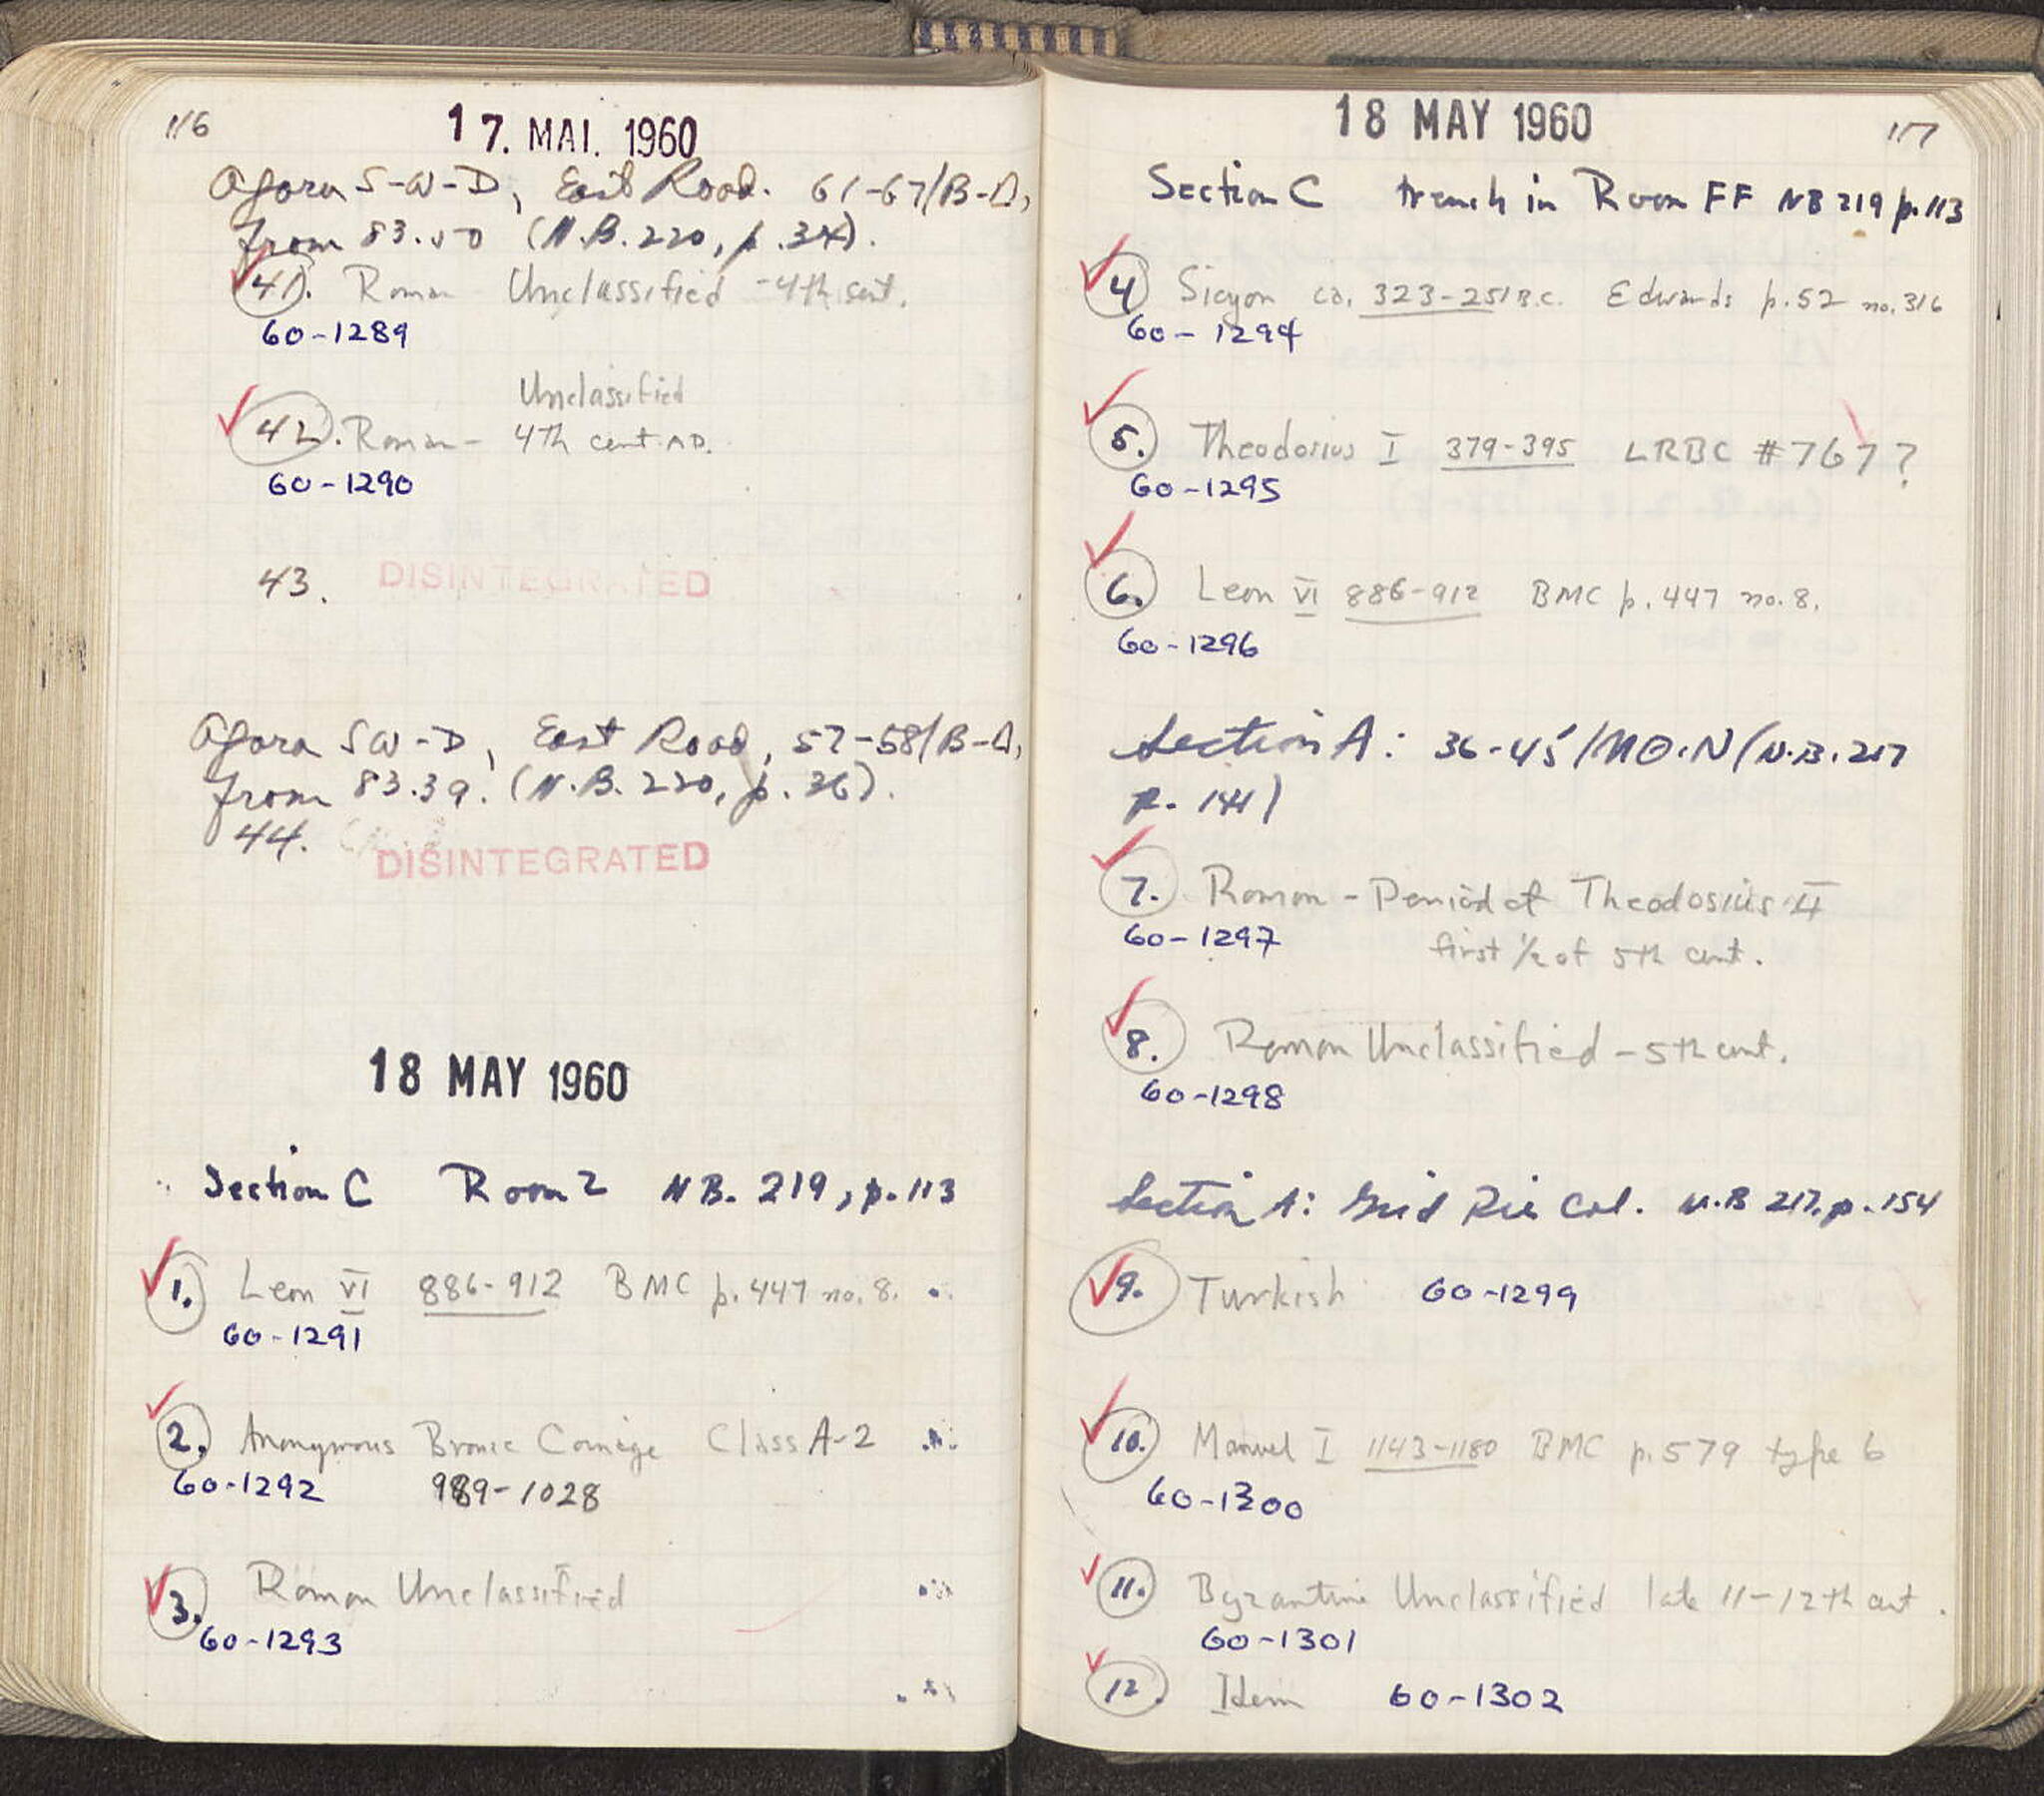 116
17. MAI. 1960
Agora S-W-D, East Road. 61-67/B-D,
from 83.50 (N.B. 220, p. 34).
41. Roman Unclassified - 4th cent.
60-1289
Unclassified
42. Roman - 4th cent. AD.
60-1290
43. DISINTEGRATED
Agora SW-D, East Road, 57-58/B-D,
from 83.39. (N.B. 220, p. 36).
44. DISINTEGRATED
18 MAY 1960
Section C Room 2 NB. 219, p. 113
1. Leon VI 886-912 BMC p. 447 no. 8.
60-1291
2. Anonymous Bronze Coinage Class A-2
60-1292 989-1028
3. Roman Unclassified
60-1293
18 MAY 1960
117
Section C trench in Room FF NB 219 p. 113
4. Sicyon ca. 323-251 B.C. Edwards p. 52 no. 316
60-1294
5. Theodosius I 379-395 LRBC #767?
60-1295
6. Leon VI 886-912 BMC p. 447 no. 8.
60-1296
Section A: 36-45 / (N.B. 217
p. 141)
7. Roman - Period of Theodosius II
60-1297 first 1/2 of 5th cent.
8. Roman Unclassified - 5th cent.
60-1298
Section A: Grid Col. N.B 217. p. 154
9. Turkish 60-1299
10. Manuel I 1143-1180 BMC p. 579 type 6
60-1300
11. Byzantine Unclassified late 11-12th cent.
60-1301
12. Idem 60-1302